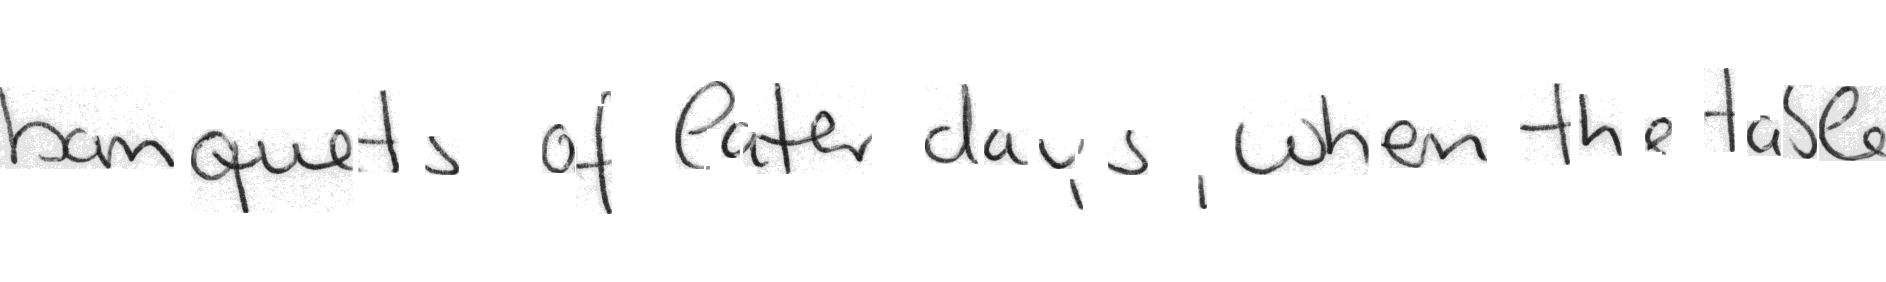 banquets of later days, when the table